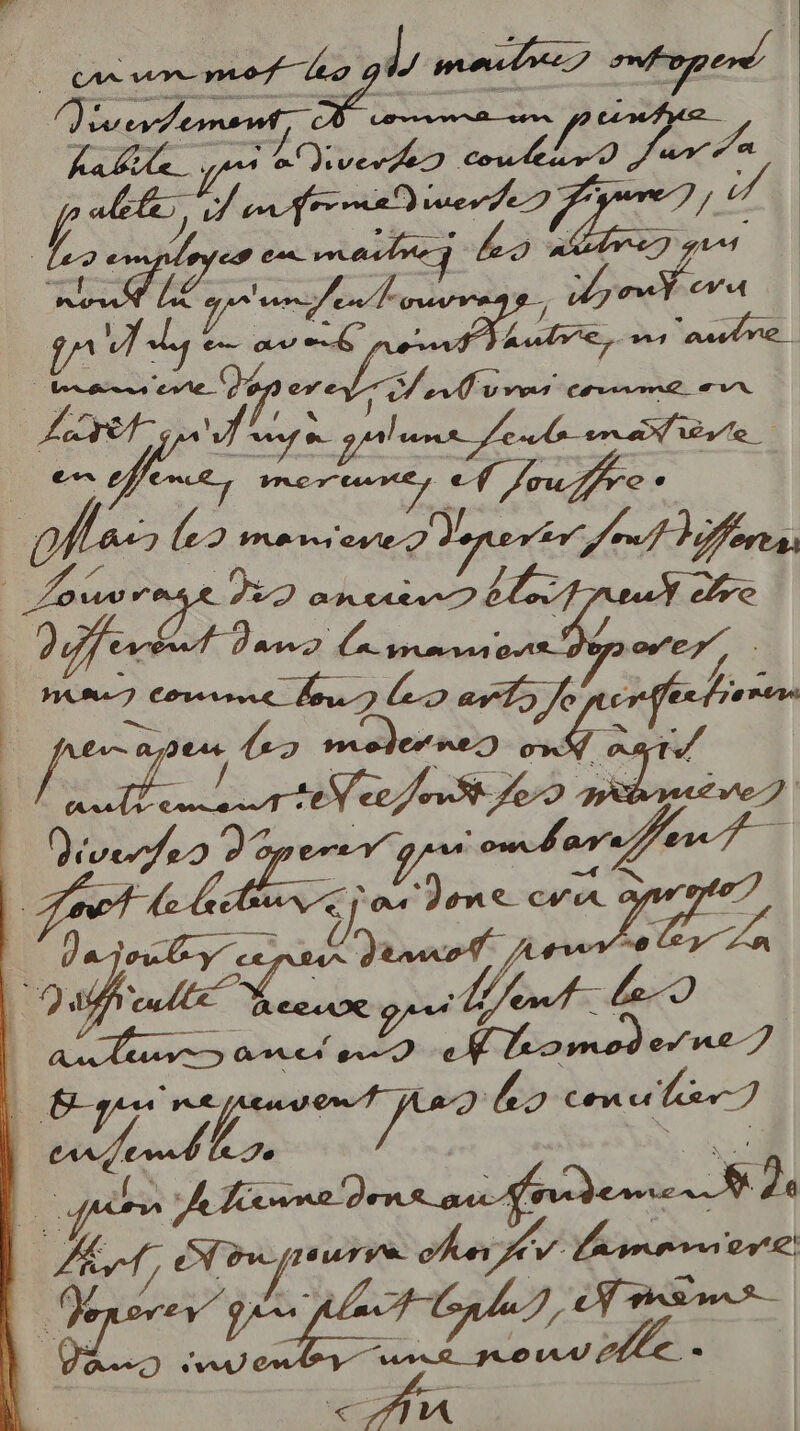 en un mot les gds maitres ont operé
diversement, et comme un peintre
habile qui a diverses couleurs sur sa
palete, il en forme diverses figures, il
les employes en maitres les autres qui
nont lû qu'un seul ouvrage, ils ont cru
qu'il ny en avoit point dautre, ni autre
maniere doperer, il est vrai comme on
la dit qu'il ny a qu'une seule matiere
en essence, mercure, et souffre.
Mais les manieres doperer sont differens
Louvrage des anciens etoit peut etre
different dans la maniere doperer,
mais comme tous les arts se perfectionen
peu apeu les modernes ont agis
autrement et ce sont ses manieres
diverses d'operer qui embarassent
fort le lecteur, j'ai donc crû apropos
dajouter ce peu de mot pour oter la
difficulté a ceux qui lisent les
auteurs anciens et les modernes
& qui ne peuvent pas les concilier
ensembles.
quon se tienne donc au fondement de
Lart, et on pourra choisir la maniere
doperer qui plait le plus, et même
dans inventer une nouvelle.
fin